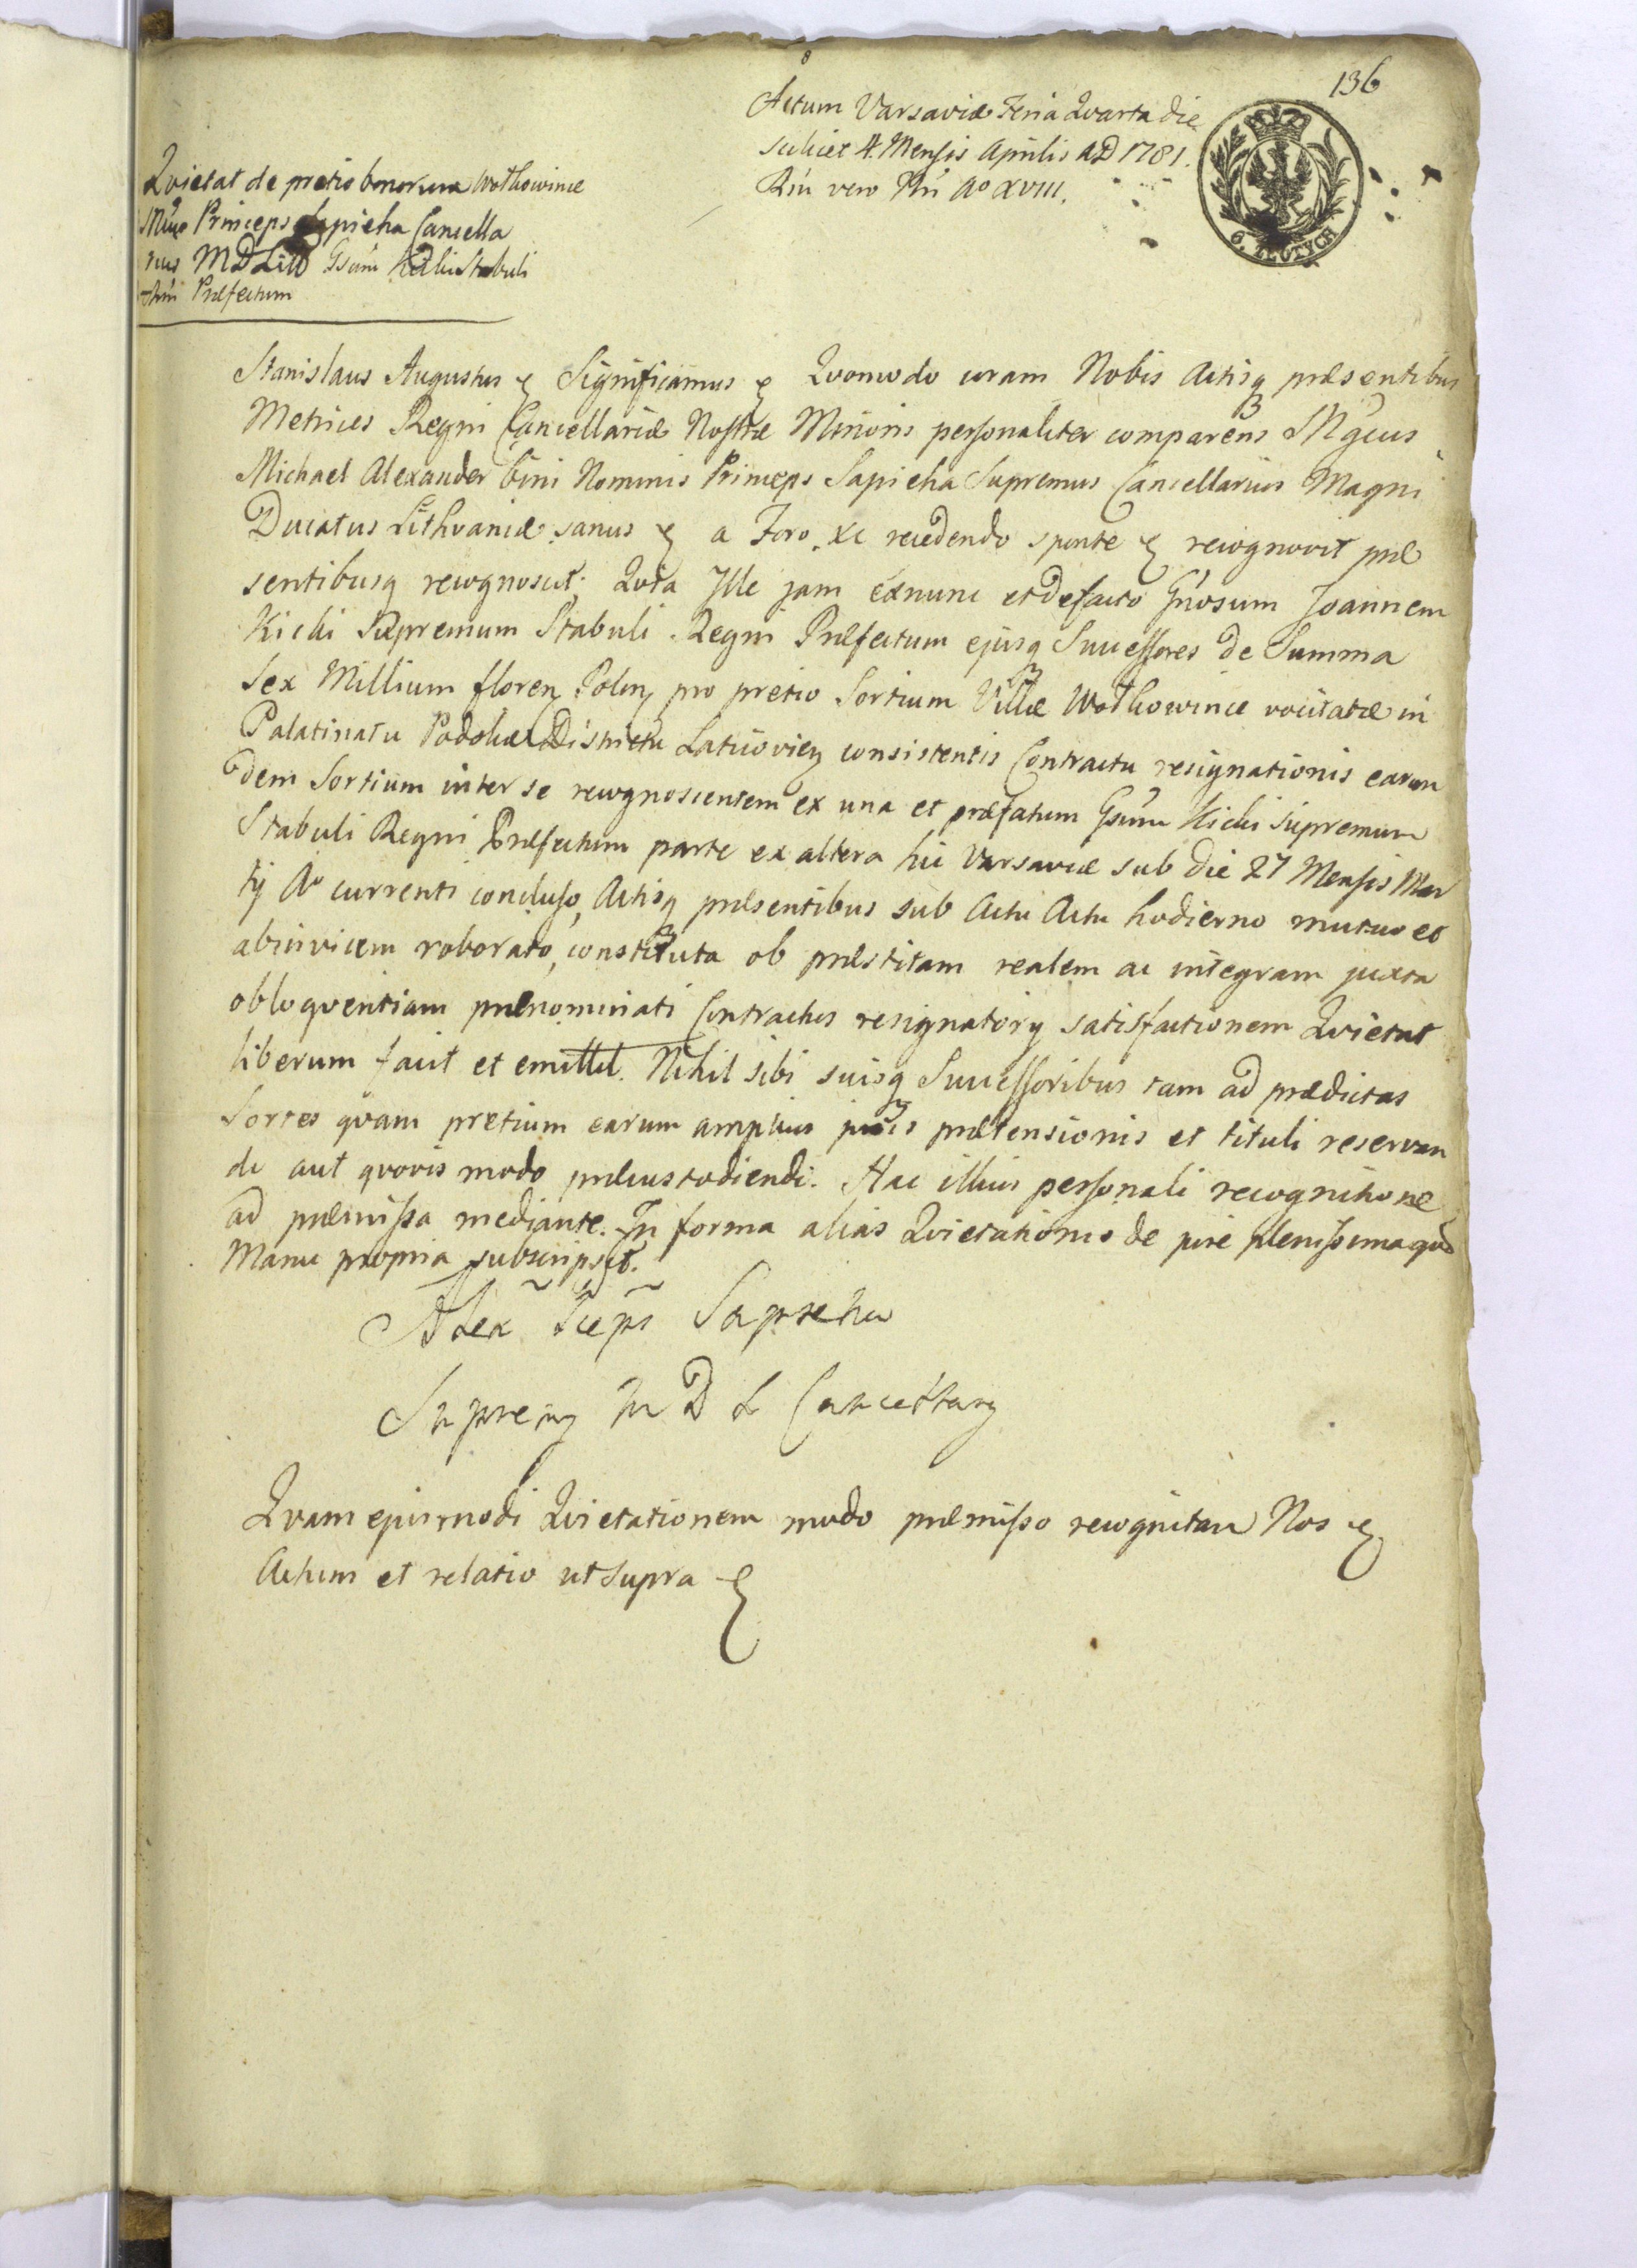 136
Actum Varsaviæ Feria Qvarta die
scilicet 4. Mensis Aprilis AD 1781.
Rni vero Nri Ao XVIII.
6. ZŁOTYCH
Qvietat de pretio bonorum Wołkowince
Princeps Sapieha Cancella
rius MDLitt Gsum Kicki Stabuli
Præfectum
Stanislaus Augustus & Significamus & Qvomodo coram Nobis Actisq præsentibus
Metrices Regni Cancellariæ Nostræ Minoris personaliter comparens Mgcus
Michael Alexander bini Nominis Princeps Sapieha Supremus Cancellarius Magni
Ducatus Lithvaniæ sanus & a Foro. &c recedendo sponte & recognovit præ
sentibusq recognoscit; Qvia Ille jam exnunc et defacto Gnosum Joannem
Kicki Supremum Stabuli Regni Præfectum ejusq Successores de Summa
Sex Millium floren Polon pro pretio Sortium Villæ Wołkowince vocitatæ in
Palatinatu Podoliæ Districtu Laticovien consistentis Contractu resignationis earun
dem Sortium inter se recognoscentem ex una et præfatum Gsum Kicki Supremum
Stabuli Regni Præfectum parte ex altera hic Varsaviæ sub die 27 Mensis Mar
tij Ao currenti concluso, Actisq præsentibus sub Actu Actu hodierno mutuo et
abinvicem roborato, constituta ob præstitam realem ac integram juxta
obloqventiam prænominati Contractus resignatorij satisfactionem Qvietat
liberum facit et emittit. Nihil sibi suisq Successoribus tam ad prædictas
Sortes qvam pretium earum amplius juris prætensionis et tituli reservan
di aut qvovis modo præcustodiendi. Hac illius personali recognitione
ad præmissa mediante. In forma alias Qvietationis de jure plenissima qvod
Manu propria subscripsit.
Alex Sapieha
Supremy M D L Cancellary
Qvam ejusmodi Qvietationem modo præmisso recognitam Nos &
Actum et relatio ut supra &